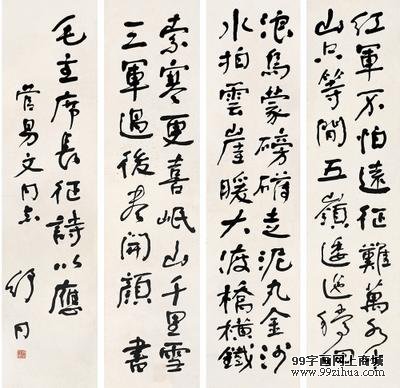 紅軍不怕遠征難萬水千
山只等閒五嶺逶迤騰細
浪烏蒙磅礴走泥丸金沙
水拍雲崖暖大渡橋橫鐵
索寒更喜岷山千里雪
三軍過後盡開顏 書
毛主席長征詩以應
管易文同志
舒同
99字画网上商城
www.99zihua.com